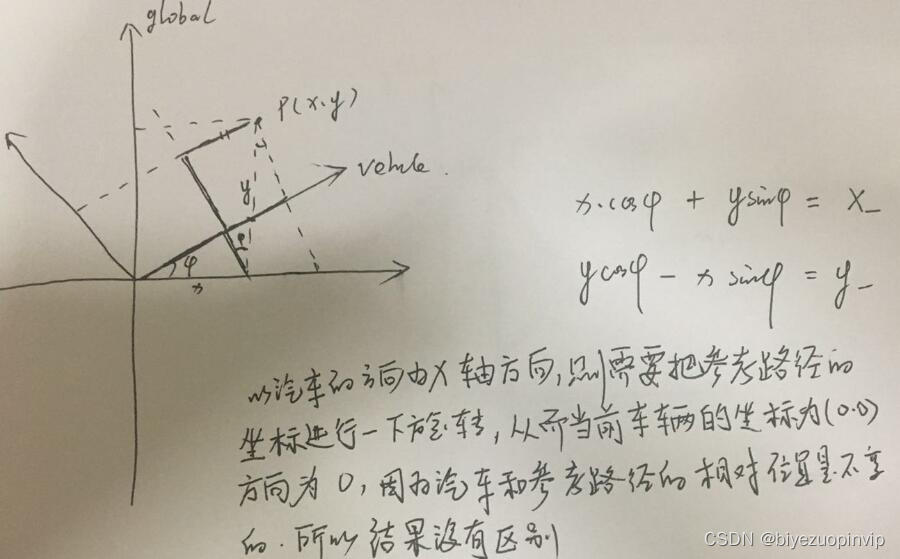 global
P(x.y)
vehcle.
y
φ
φ
x
x.cosφ + ysinφ = x_
ycosφ - x sinφ = y_
以汽车的方向为X轴方向,则需要把参考路径的
坐标进行一下旋转,从而当前车辆的坐标为(0.0)
方向为0,因为汽车和参考路径的相对位置是不变
的.所以结果没有区别
CSDN @biyezuopinvip